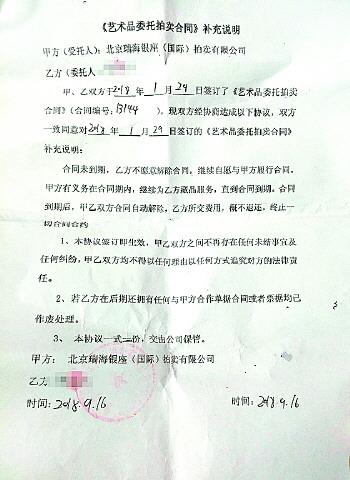 《艺术品委托拍卖合同》补充说明
甲方（受托人）：北京瑞海银座（国际）拍卖有限公司
乙方（委托人
甲、乙双方于2018年1月29日签订了《艺术品委托拍卖
合同》（合同编号：B144），现双方经协商达成以下协议，双方
一致同意对2018年1月29日签订的《艺术品委托拍卖合同》
补充说明：
合同未到期，乙方不愿意解除合同，继续自愿与甲方履行合同，
甲方有义务在合同期内，继续为乙方藏品服务，直到合同到期。合同
到期后，甲乙双方合同自动解除，乙方所交费用，概不返还，终止一
切合同合约
1、本协议签订即生效，甲乙双方之间不再存在任何未结事宜及
任何纠纷，甲乙双方均不得以任何理由以任何方式追究对方的法律责
任。
2、若乙方在后期还拥有任何与甲方合作单据合同或者票据均已
作废处理。
3、本协议一式二份，交由公司保管。
甲方：北京瑞海银座（国际）拍卖有限公司
乙方
时间：2018.9.16 时间：2018.9.16